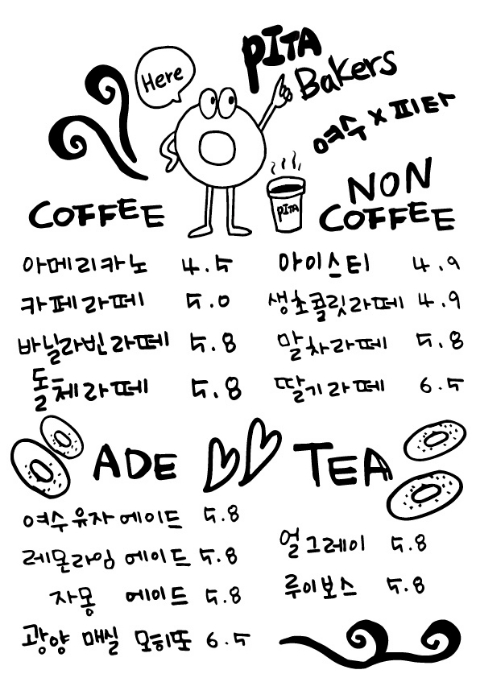 Here
PITA
Bakers
여수 x 피타
PITA
COFFEE
아메리카노 4.5
카페라떼 5.0
바닐라빈라떼 5.8
돌체라떼 5.8
NON
COFFEE
아이스티 4.9
생초콜릿라떼 4.9
말차라떼 5.8
딸기라떼 6.5
ADE
여수유자에이드 5.8
레몬라임 에이드 5.8
자몽 에이드 5.8
광양 매실 모히또 6.5
TEA
얼그레이 5.8
루이보스 5.8